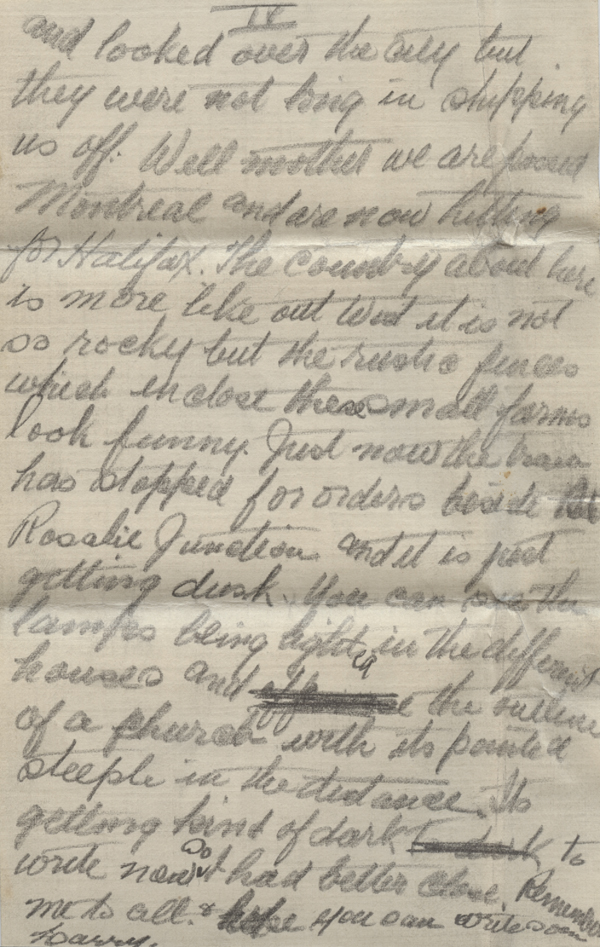 IV
and looked over the city but
they were not long in shipping
us off. Well mother we are passed
Montreal and are now hitting
for Halifax. The country about here
is more like out West it is not
so rocky but the rustic fences
which inclose these small farms
look funny. Just now the train
has stopped for orders beside
Rosalie Junction and it is just
getting dusk. You can see the
lamps being lighted in the different
houses and the outline
of a church with its pointed
steeple in the distance. Its
getting kind of dark to
write now so I had better close. Remember
me to all. & hope you can write soon
Harry.